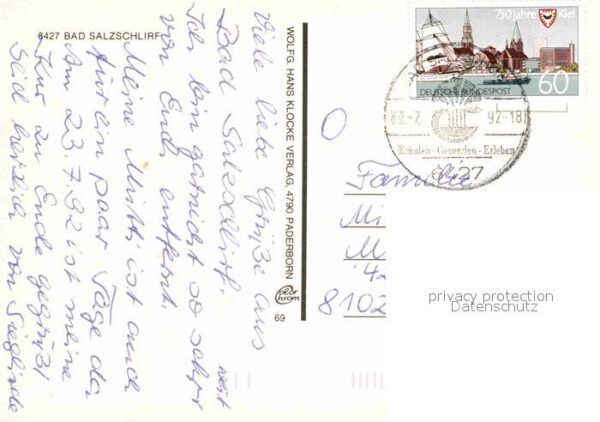 6427 BAD SALZSCHLIRF
Viele liebe Grüße aus
Bad Salzschlirf.
Ich bin garnicht so sehr weit
von Euch entfernt.
Meine Mutti ist auch
für ein paar Tage da
Am 23.7.92 ist meine
Kur zu Ende gegrüßt
Seid herzlich von Sieglinde
WOLFG. HANS KLOCKE VERLAG, 4790 PADERBORN
69
750 Jahre Kiel
DEUTSCHE BUNDESPOST 60
92-18
Erholen - Gesunden - Erleben
6427
Familie
Mi
M
8102
privacy protection
Datenschutz